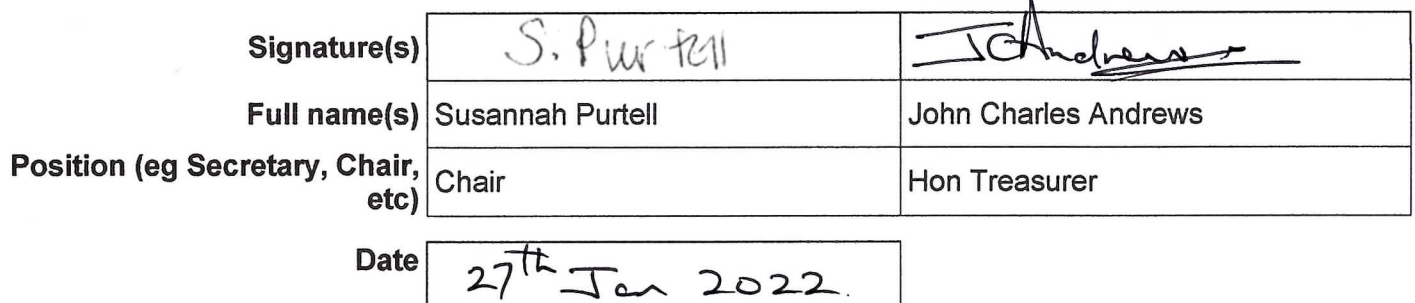 Signature(s) S. Purtell JCAndrews
Full name(s) Susannah Purtell John Charles Andrews
Position (eg Secretary, Chair,
etc) Chair Hon Treasurer
Date 27th Jan 2022.